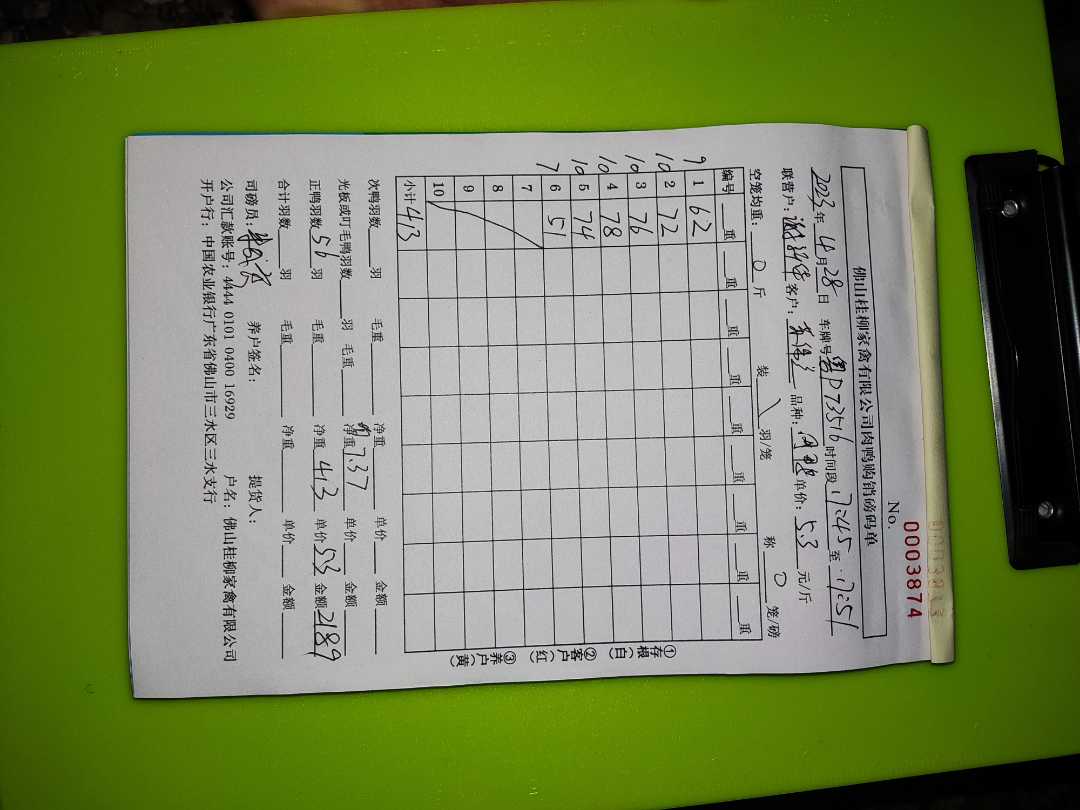 佛山桂柳家禽有限公司肉鸭购销磅码单
No. 0003874
2023年4月28日 车牌号粤D73516时间段17:45至17:51
联营户: 客户: 品种: 单价:5.3元/斤
空笼均重:0斤 装\羽/笼 称0笼/磅
编号 重 重 重 重 重 重 重 重 重
9 1 62
10 2 72
10 3 76
10 4 78
10 5 74
7 6 51
7
8
9
10
小计 413
①存根(白) ②客户(红) ③养户(黄)
次鸭羽数 羽 毛重 净重 单价 金额
光板或叮毛鸭羽数 羽 毛重 净重 单价 金额
均7.37
正鸭羽数56羽 毛重 净重413 单价5.3 金额2189
合计羽数 羽 毛重 净重 单价 金额
司磅员: 养户签名: 提货人:
公司汇款账号:4444 0101 0400 16929 户名:佛山桂柳家禽有限公司
开户行:中国农业银行广东省佛山市三水区三水支行